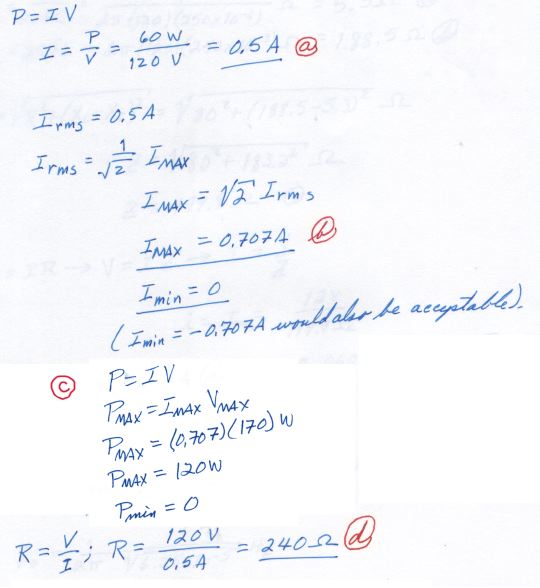 P = I V
I = P/V = 60 W / 120 V = 0.5 A (a)
I rms = 0.5 A
I rms = 1/√2 I MAX
I MAX = √2 I rms
I MAX = 0.707 A (b)
I min = 0
( I min = -0.707 A would also be acceptable).
(c) P = I V
P MAX = I MAX V MAX
P MAX = (0.707)(170) W
P MAX = 120 W
P min = 0
R = V/I ; R = 120 V / 0.5 A = 240 Ω (d)